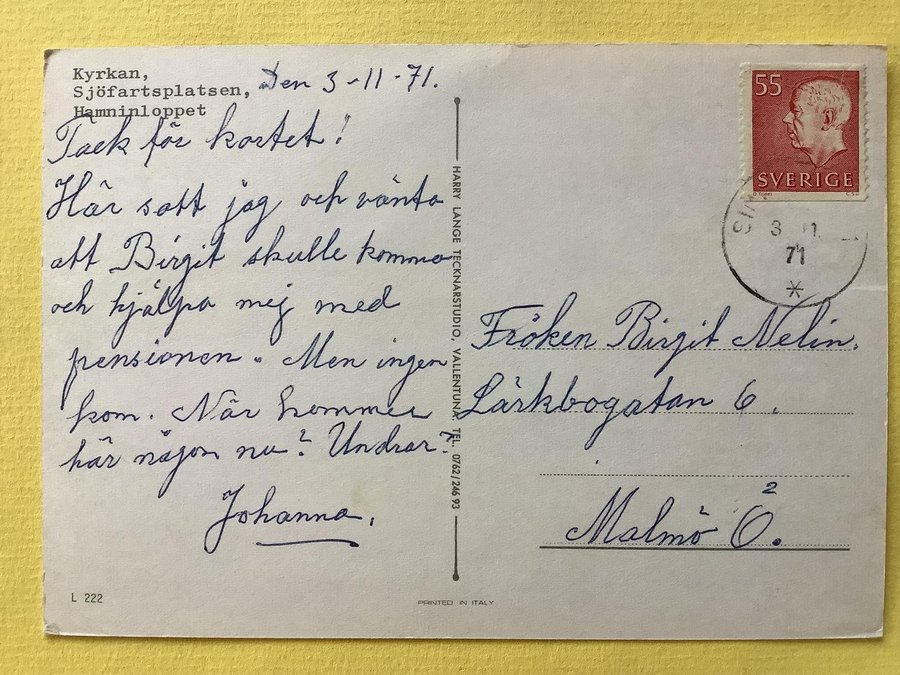 Kyrkan,
Sjöfartsplatsen,
Hamninloppet
Den 3-11-71.
Tack för kortet!
Här satt jag och vänta
att Birgit skulle komma
och hjälpa mej med
pensionen. Men ingen
kom. När kommer
här någon nu? Undrar?
Johanna.
L 222
HARRY LANGE TECKNARSTUDIO, VALLENTUNA, TEL. 0762/246 93
PRINTED IN ITALY
55
SVERIGE
3 11
71
*
Fröken Birgit Nelin.
Lärkbogatan 6.
Malmö Ö. 2